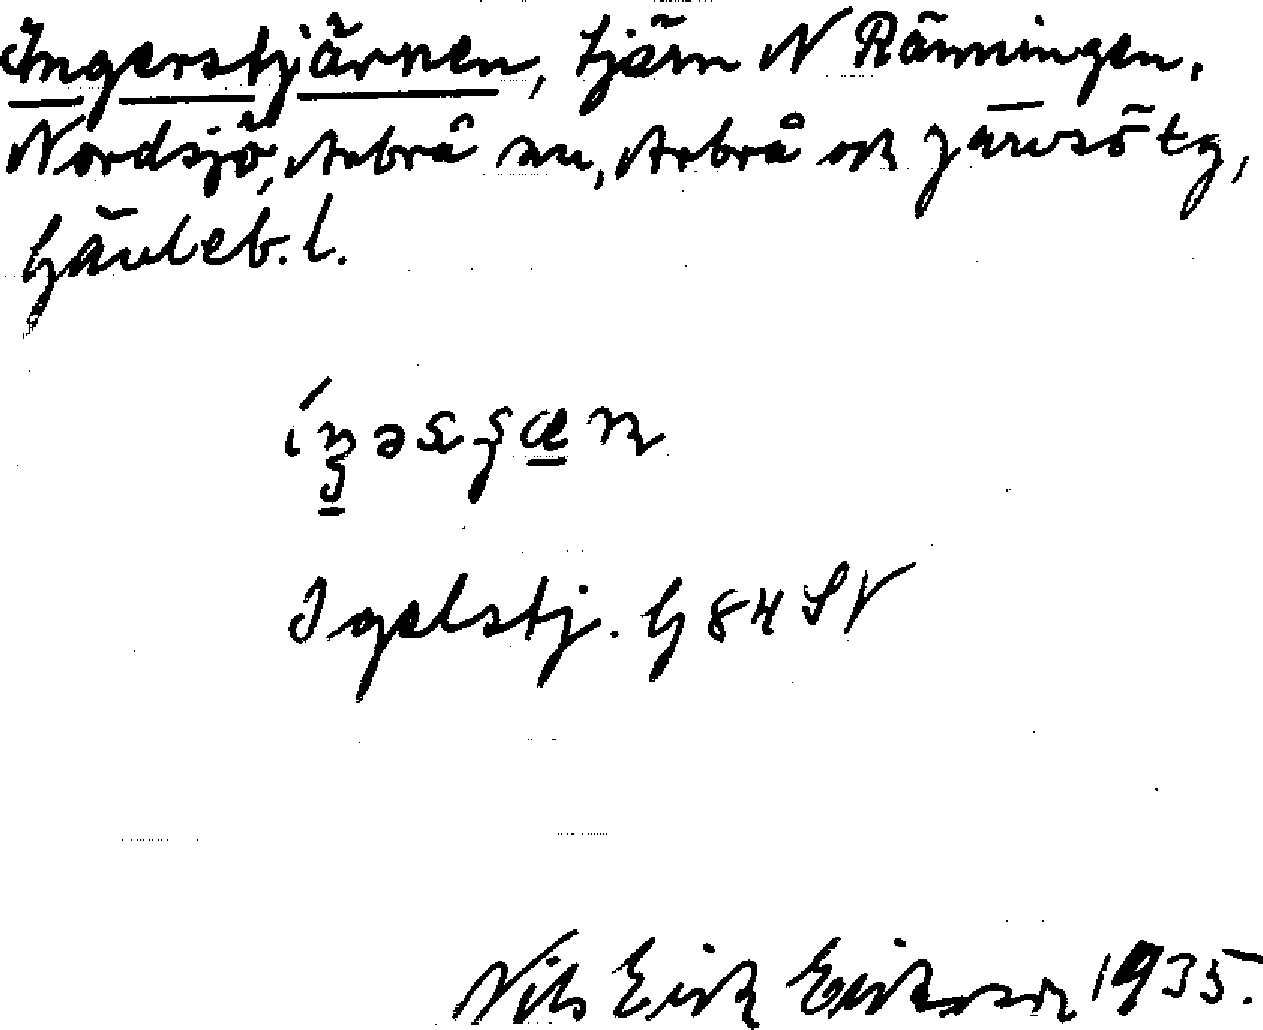 Ingerstjärnen, tjärn N Ränningen,
Nordsjö, Arbrå sn, Arbrå och Järvsö tg,
Gävleb. l.
Igelstj. G 84 SV
Nils Eric Eriksson 1935.